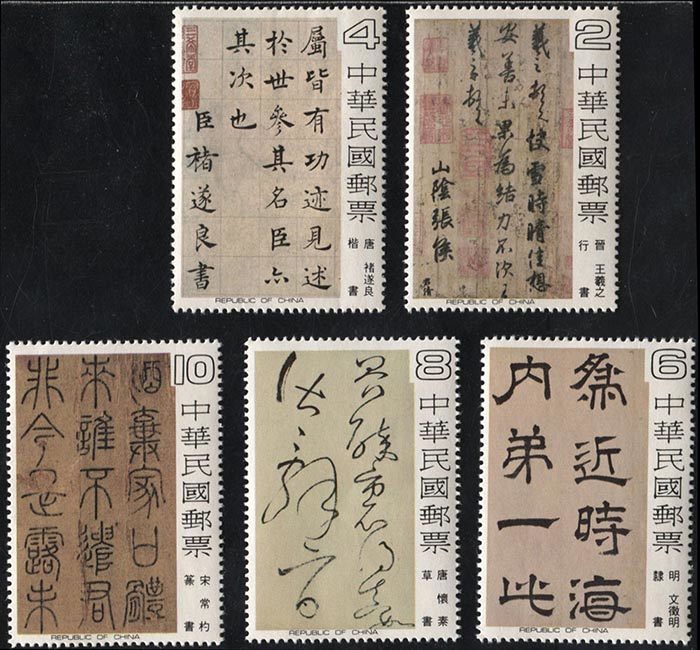 4
中華民國郵票
唐 褚遂良
楷書
屬皆有功迹見述
於世參其名臣亦
其次也
臣褚遂良書
REPUBLIC OF CHINA
2
中華民國郵票
晉 王羲之
行書
羲之頓首快雪時晴佳想
安善未果為結力不次王
羲之頓首
山陰張侯
REPUBLIC OF CHINA
10
中華民國郵票
宋 常杓
篆書
棄家口
來誰不君
非今是露未
REPUBLIC OF CHINA
8
中華民國郵票
唐 懷素
草書
REPUBLIC OF CHINA
6
中華民國郵票
明 文徵明
隸書
為近時海
内弟一此
REPUBLIC OF CHINA